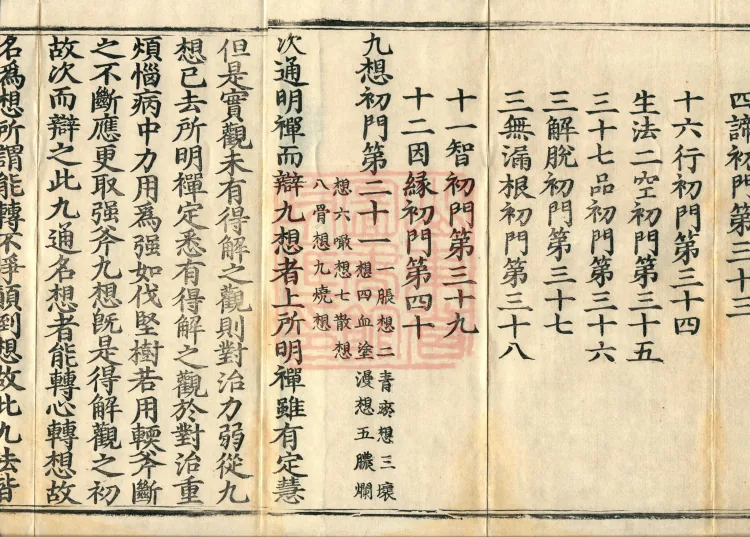 四諦初門第三十三
十六行初門第三十四
生法二空初門第三十五
三十七品初門第三十六
三解脫初門第三十七
三無漏根初門第三十八
十一智初門第三十九
十二因縁初門第四十
九想初門第二十一
一脹想二青瘀想三壞
想四血塗漫想五膿爛
想六噉想七散想
八骨想九燒想
次通明禪而辯九想者上所明禪雖有定慧
但是實觀未有得解之觀則對治力弱從九
想已去所明禪定悉有得解之觀於對治重
煩惱病中力用爲强如伐堅樹若用輭斧斷
之不斷應更取强斧九想旣是得解觀之初
故次而辯之此九通名想者能轉心轉想故
名爲想所謂能轉不淨顛到想故此九法皆